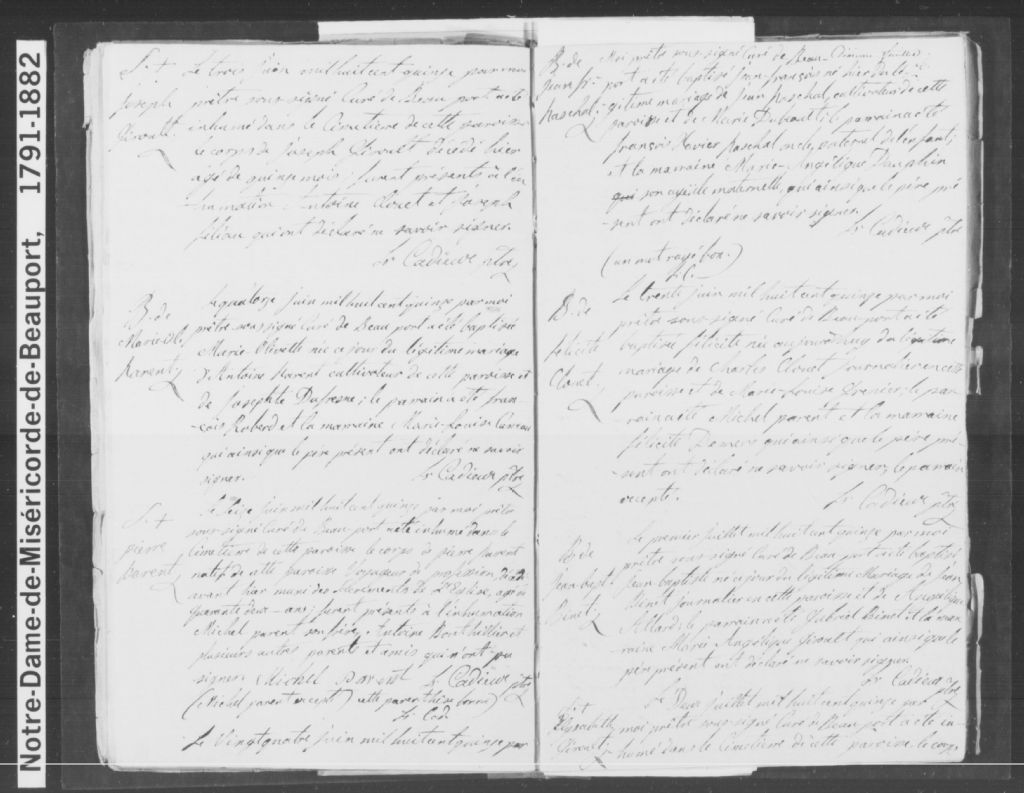 Notre-Dame-de-Miséricorde-de-Beauport, 1791-1882
S. +
Joseph
Giroult.
Le trois juin mil huit cent quinze par moi
prêtre sous-signé Curé de Beauport a été
inhumé dans le Cimetière de cette paroisse
le corps de Joseph Giroult décédé hier
agé de quinze mois; furent présents à l'in
-humation Antoine Clouet et Joseph
qui ont déclaré ne savoir signer.
Fr Cadieux ptre
B. de
Marie Ol.
Parent
Le quatorze juin mil huit cent quinze par moi
prêtre sous-signé Curé de Beauport a été baptisée
Marie Olivette née ce jour du légitime mariage
d'Antoine Parent cultivateur de cette paroisse et
de Josephte Dufresne; le parrain a été fran-
-çois Roberd et la marraine Marie-Louise
qui ainsi que le père présent ont déclaré ne savoir
signer.
Fr Cadieux ptre
S. +
pierre
parent
Le seize juin mil huit cent quinze par moi prêtre
sous-signé Curé de Beauport a été inhumé dans le
Cimetière de cette paroisse le corps de pierre parent
natif de cette paroisse Voyageur de profession, décédé
avant hier muni des Sacrements de l'Eglise, agé de
quarante deux ans; furent présents à l'inhumation
Michel parent son frère, Antoine et
plusieurs autres parents et amis qui n'ont pu
signer Michel Parent Fr Cadieux ptre
(Michel parent excepté) cette parenthèse bonne)
Fr Cad.
Le Vingt quatre juin mil huit cent quinze par
B. de
Jean fr.
Paschal.
Moi prêtre sous-signé Curé de Beau-
port a été baptisé jean-françois né hier du lé-
gitime mariage de Jean Paschal, cultivateur de cette
paroisse et de Marie le parrain a été
françois Xavier Paschal oncle paternel de l'enfant;
et la marraine Marie-Angélique Dauphin
qui son ayeule maternelle, qui ainsi que le père pré
-sent ont déclaré ne savoir signer.
Fr Cadieux ptre
(un mot rayé bon.)
F. C.
B. de
félicité
Clouet.
Le trente juin mil huit cent quinze par moi
prêtre sous-signé Curé de Beauport a été
baptisée félicité née aujourd'huy du légitime
mariage de Charles Clouet Journalier en cette
paroisse et de Marie-Louise Grenier; le par-
-rain a été Michel parent et la marraine
félicité qui ainsi que le père pré
-sent ont déclaré ne savoir signer, le parrain
excepté.
Fr Cadieux ptre
B. de
Jean bapt.
Binet
Le premier juillet mil huit cent quinze par moi
prêtre sous signé Curé de Beauport a été baptisé
Jean baptiste né ce jour du légitime Mariage de Jean
Binet journalier en cette paroisse et de Angélique
Allard; le parrain a été Gabriel Binet et la mar
raine Marie Angélique Giroult qui ainsi que le
père présent ont déclaré ne savoir signer.
Fr Cadieux ptre
S. +
Elisabeth
Giroult
Le Deux juillet mil huit cent quinze par
moi prêtre sous-signé Curé de Beauport a été in-
humé dans le Cimetière de cette paroisse le corps